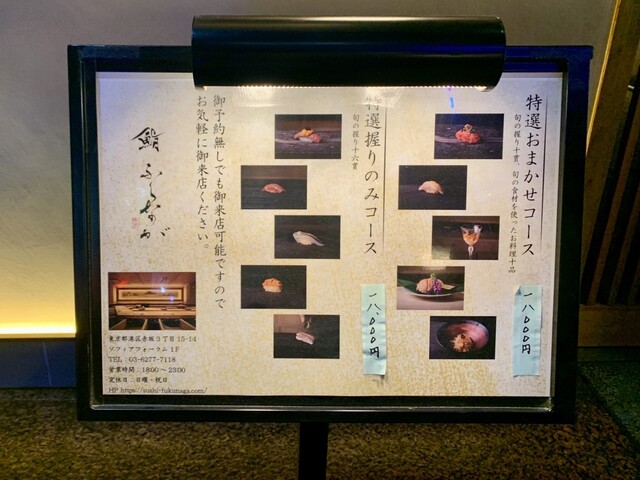 特選おまかせコース
旬の握り十貫、旬の食材を使ったお料理十品
一八、〇〇〇円
特選握りのみコース
旬の握り十六貫
一八、〇〇〇円
御予約無しでも御来店可能ですので
お気軽に御来店ください。
鮨 ふくなが
東京都港区赤坂3丁目15-14
ソフィアフォーラム 1F
TEL : 03-6277-7118
営業時間 : 18:00 ~ 23:00
定休日 : 日曜・祝日
HP https://sushi-fukunaga.com/